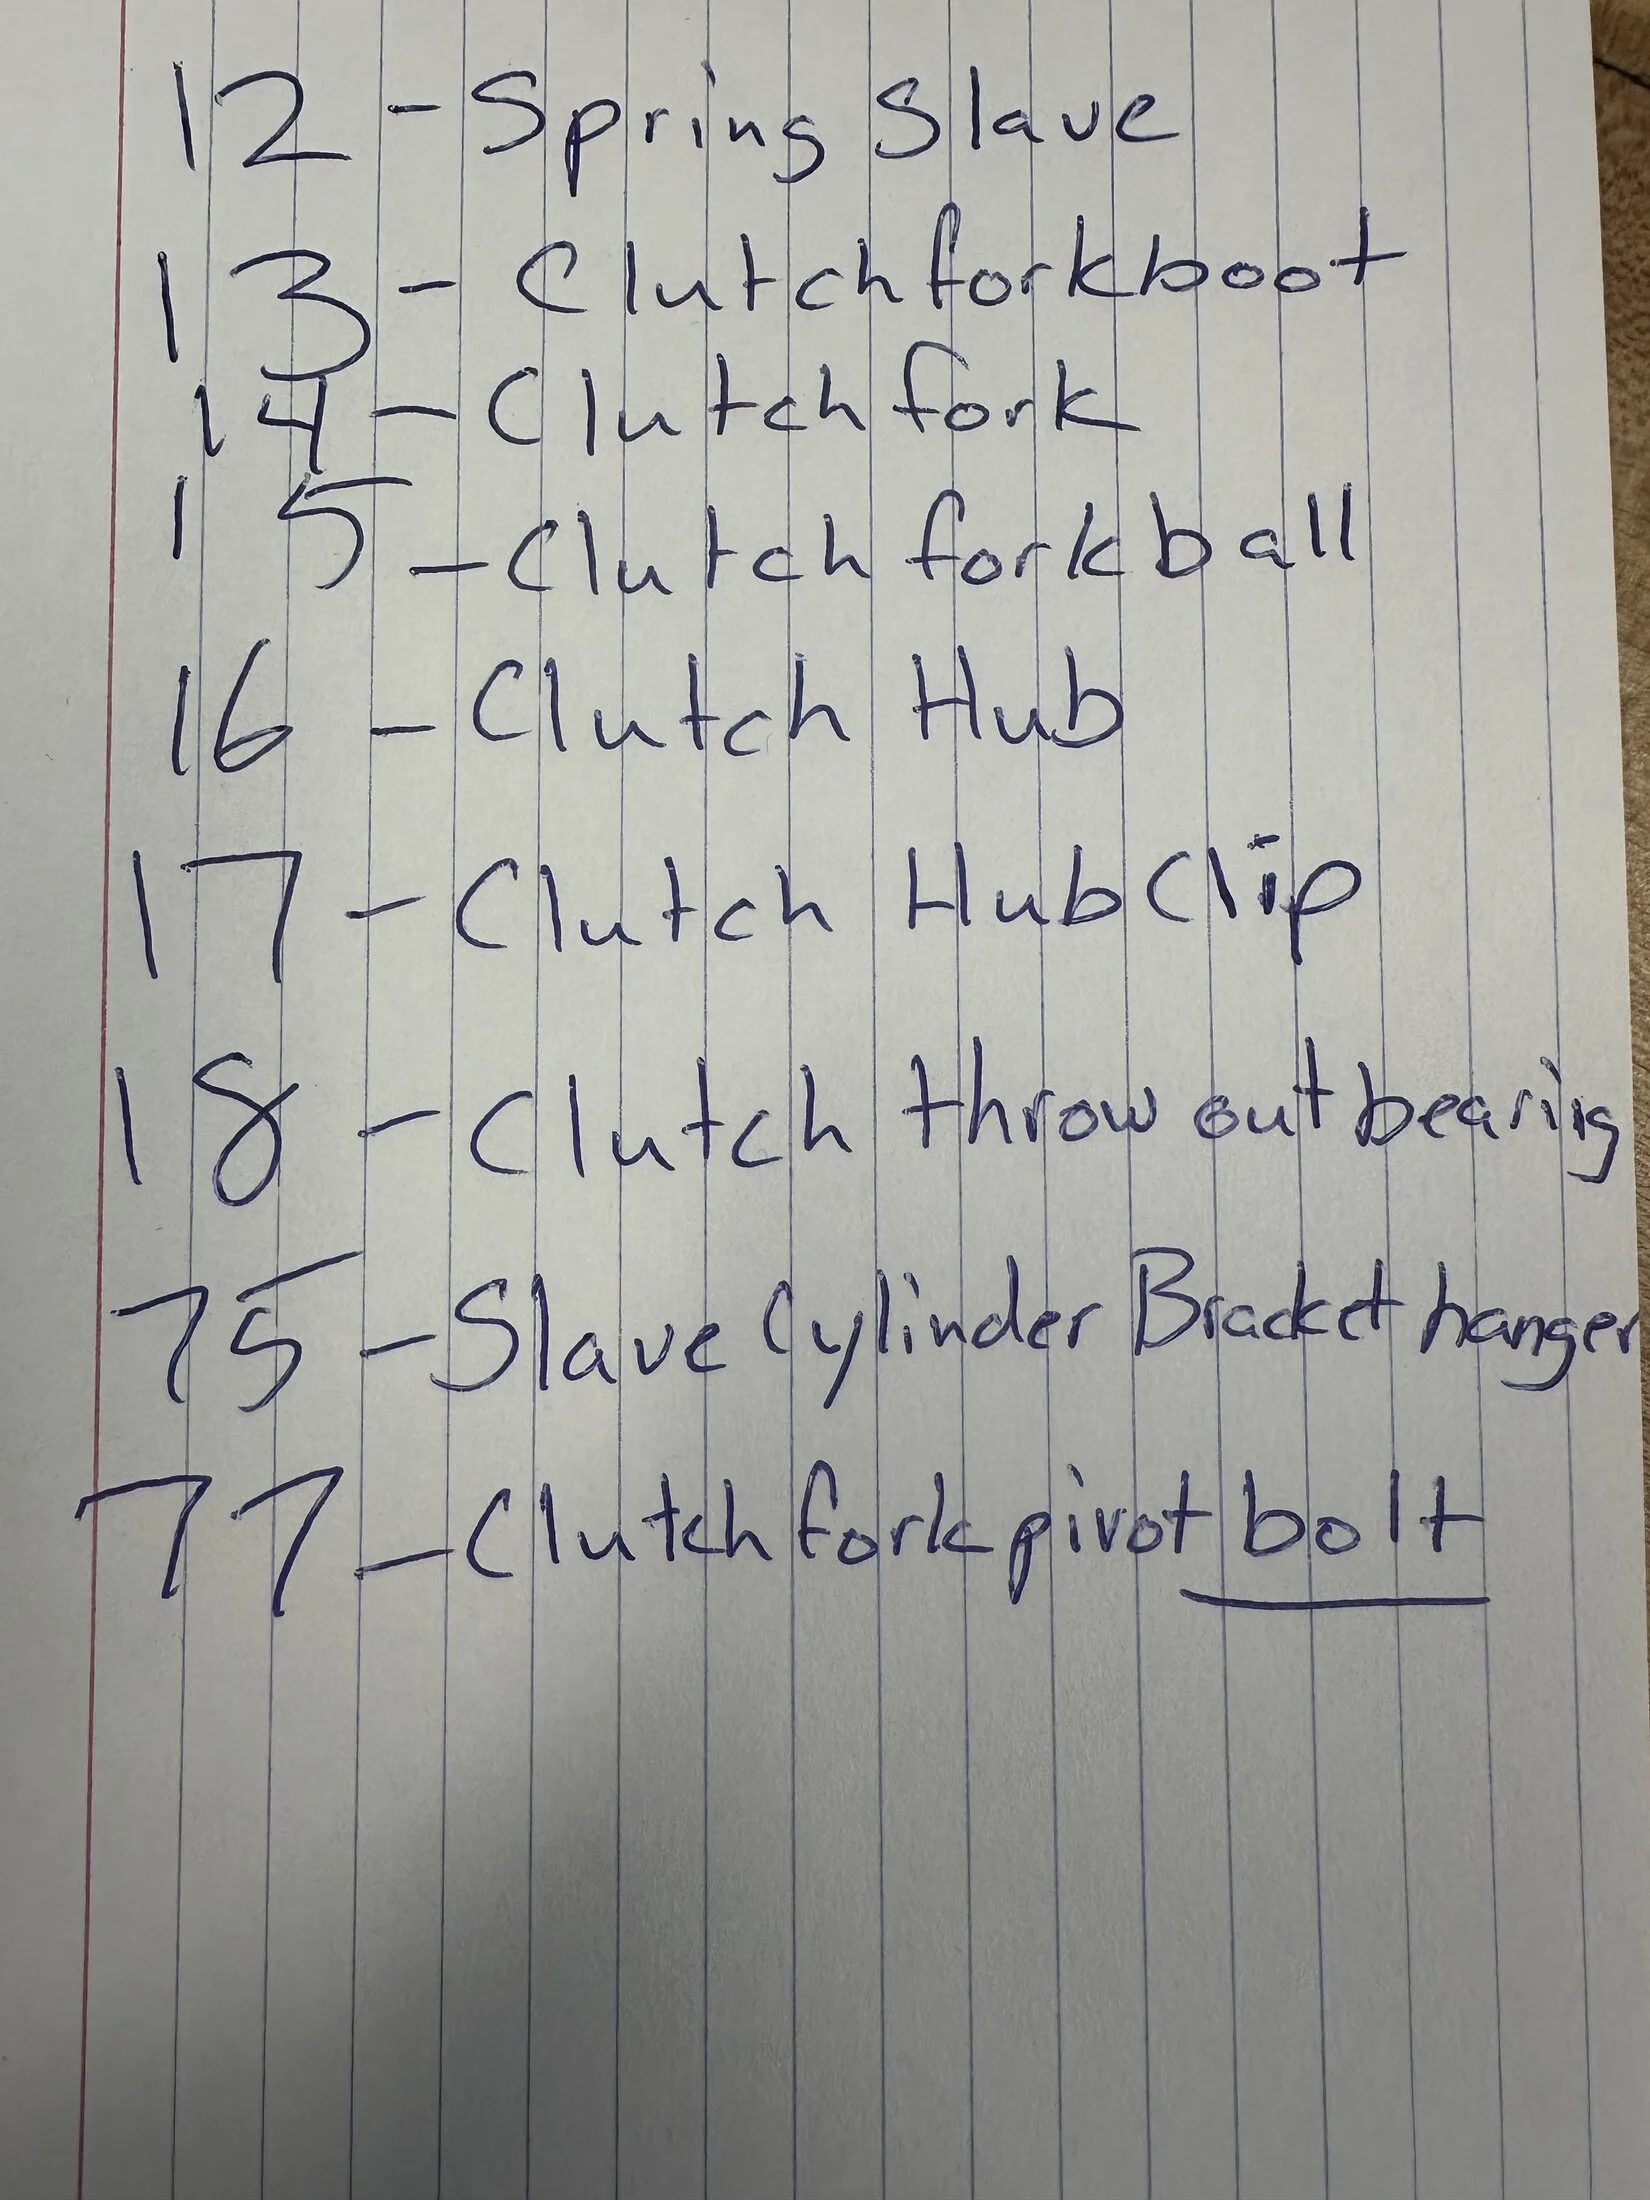 12 - Spring Slave
13 - Clutch fork boot
14 - Clutch fork
15 - Clutch fork ball
16 - Clutch Hub
17 - Clutch Hub Clip
18 - Clutch throw out bearing
75 - Slave Cylinder Bracket hanger
77 - Clutch fork pivot bolt